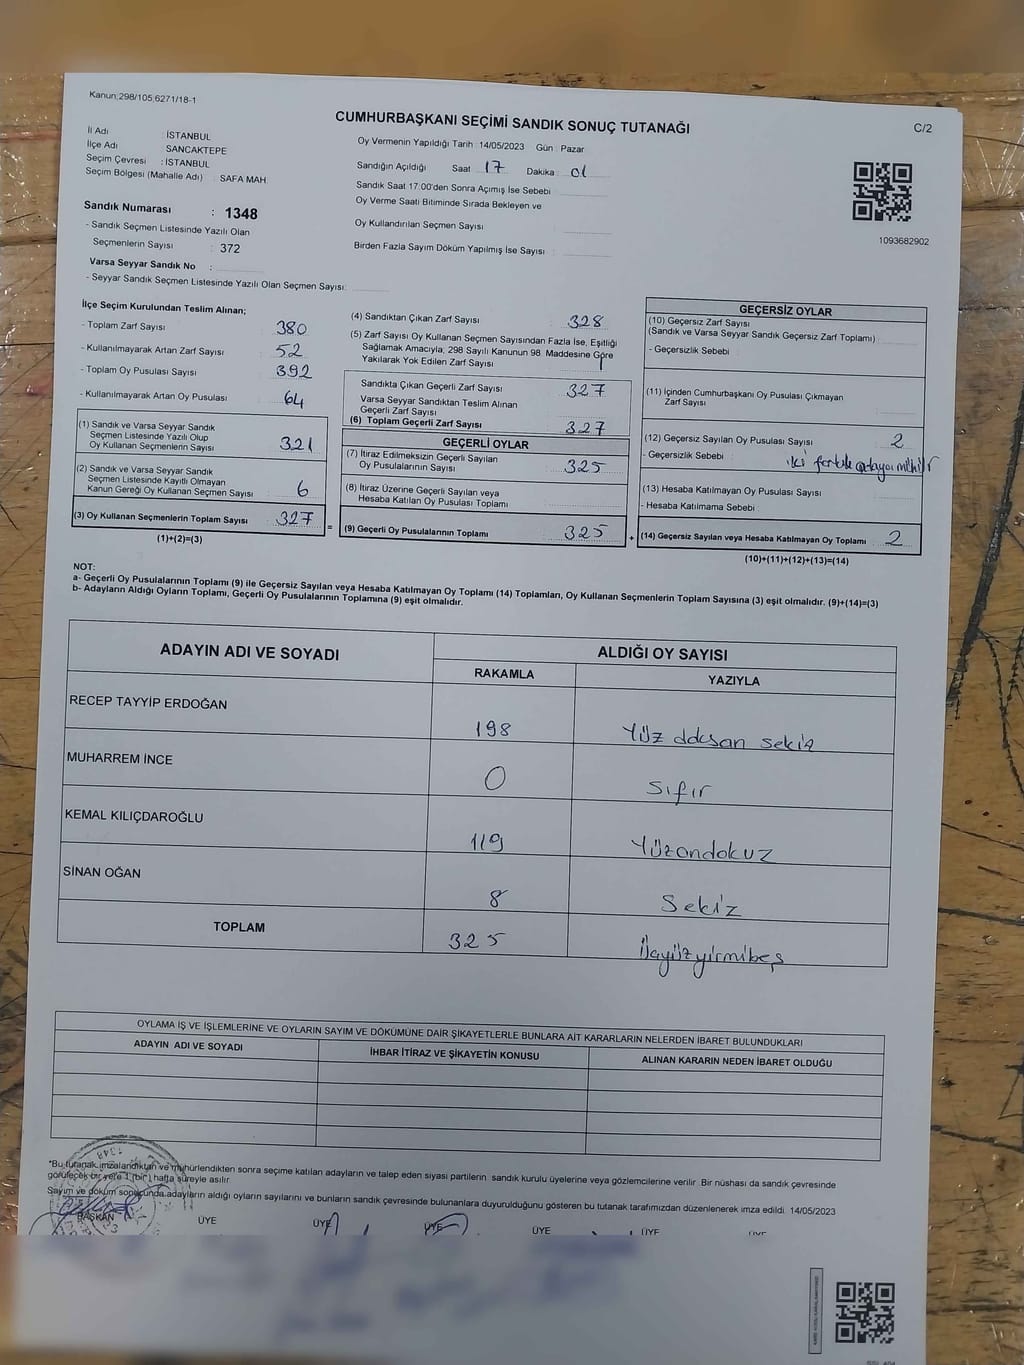 Kanun;298/105,6271/18-1
CUMHURBAŞKANI SEÇİMİ SANDIK SONUÇ TUTANAĞI
C/2
İl Adı : İSTANBUL
İlçe Adı : SANCAKTEPE
Seçim Çevresi : İSTANBUL
Seçim Bölgesi (Mahalle Adı) : SAFA MAH
Oy Vermenin Yapıldığı Tarih : 14/05/2023 Gün : Pazar
Sandığın Açıldığı Saat 17 Dakika : 01
Sandık Saat 17:00'den Sonra Açımış İse Sebebi
Oy Verme Saati Bitiminde Sırada Bekleyen ve
Oy Kullandırılan Seçmen Sayısı
Birden Fazla Sayım Döküm Yapılmış İse Sayısı
1093682902
Sandık Numarası : 1348
- Sandık Seçmen Listesinde Yazılı Olan
Seçmenlerin Sayısı : 372
Varsa Seyyar Sandık No :
- Seyyar Sandık Seçmen Listesinde Yazılı Olan Seçmen Sayısı:
İlçe Seçim Kurulundan Teslim Alınan;
- Toplam Zarf Sayısı : 380
- Kullanılmayarak Artan Zarf Sayısı : 52
- Toplam Oy Pusulası Sayısı : 392
- Kullanılmayarak Artan Oy Pusulası : 64
(1) Sandık ve Varsa Seyyar Sandık
Seçmen Listesinde Yazılı Olup
Oy Kullanan Seçmenlerin Sayısı : 321
(2) Sandık ve Varsa Seyyar Sandık
Seçmen Listesinde Kayıtlı Olmayan
Kanun Gereği Oy Kullanan Seçmen Sayısı : 6
(3) Oy Kullanan Seçmenlerin Toplam Sayısı : 327
(1)+(2)=(3)
(4) Sandıktan Çıkan Zarf Sayısı : 328
(5) Zarf Sayısı Oy Kullanan Seçmen Sayısından Fazla İse, Eşitliği
Sağlamak Amacıyla; 298 Sayılı Kanunun 98. Maddesine Göre
Yakılarak Yok Edilen Zarf Sayısı : 1
Sandıkta Çıkan Geçerli Zarf Sayısı : 327
Varsa Seyyar Sandıktan Teslim Alınan
Geçerli Zarf Sayısı :
(6) Toplam Geçerli Zarf Sayısı : 327
GEÇERLİ OYLAR
(7) İtiraz Edilmeksizin Geçerli Sayılan
Oy Pusulalarının Sayısı : 325
(8) İtiraz Üzerine Geçerli Sayılan veya
Hesaba Katılan Oy Pusulası Toplamı :
= (9) Geçerli Oy Pusulalarının Toplamı : 325
GEÇERSİZ OYLAR
(10) Geçersiz Zarf Sayısı
(Sandık ve Varsa Seyyar Sandık Geçersiz Zarf Toplamı) :
- Geçersizlik Sebebi :
(11) İçinden Cumhurbaşkanı Oy Pusulası Çıkmayan
Zarf Sayısı :
(12) Geçersiz Sayılan Oy Pusulası Sayısı : 2
- Geçersizlik Sebebi : iki farklı adaya mühür
(13) Hesaba Katılmayan Oy Pusulası Sayısı :
- Hesaba Katılmama Sebebi :
+ (14) Geçersiz Sayılan veya Hesaba Katılmayan Oy Toplamı : 2
(10)+(11)+(12)+(13)=(14)
NOT:
a- Geçerli Oy Pusulalarının Toplamı (9) ile Geçersiz Sayılan veya Hesaba Katılmayan Oy Toplamı (14) Toplamları, Oy Kullanan Seçmenlerin Toplam Sayısına (3) eşit olmalıdır. (9)+(14)=(3)
b- Adayların Aldığı Oyların Toplamı, Geçerli Oy Pusulalarının Toplamına (9) eşit olmalıdır.
ADAYIN ADI VE SOYADI
ALDIĞI OY SAYISI
RAKAMLA YAZIYLA
RECEP TAYYİP ERDOĞAN 198 Yüz doksan sekiz
MUHARREM İNCE 0 Sıfır
KEMAL KILIÇDAROĞLU 119 Yüzondokuz
SİNAN OĞAN 8 Sekiz
TOPLAM 325 üçyüzyirmibeş
OYLAMA İŞ VE İŞLEMLERİNE VE OYLARIN SAYIM VE DÖKÜMÜNE DAİR ŞİKAYETLERLE BUNLARA AİT KARARLARIN NELERDEN İBARET BULUNDUKLARI
ADAYIN ADI VE SOYADI İHBAR İTİRAZ VE ŞİKAYETİN KONUSU ALINAN KARARIN NEDEN İBARET OLDUĞU
*Bu tutanak imzalandıktan ve mühürlendikten sonra seçime katılan adayların ve talep eden siyasi partilerin sandık kurulu üyelerine veya gözlemcilerine verilir. Bir nüshası da sandık çevresinde
görülecek bir yere 1 (bir) hafta süreyle asılır.
Sayım ve döküm sonucunda adayların aldığı oyların sayılarını ve bunların sandık çevresinde bulunanlara duyurulduğunu gösteren bu tutanak tarafımızdan düzenlenerek imza edildi. 14/05/2023
BAŞKAN ÜYE ÜYE ÜYE ÜYE ÜYE ÜYE